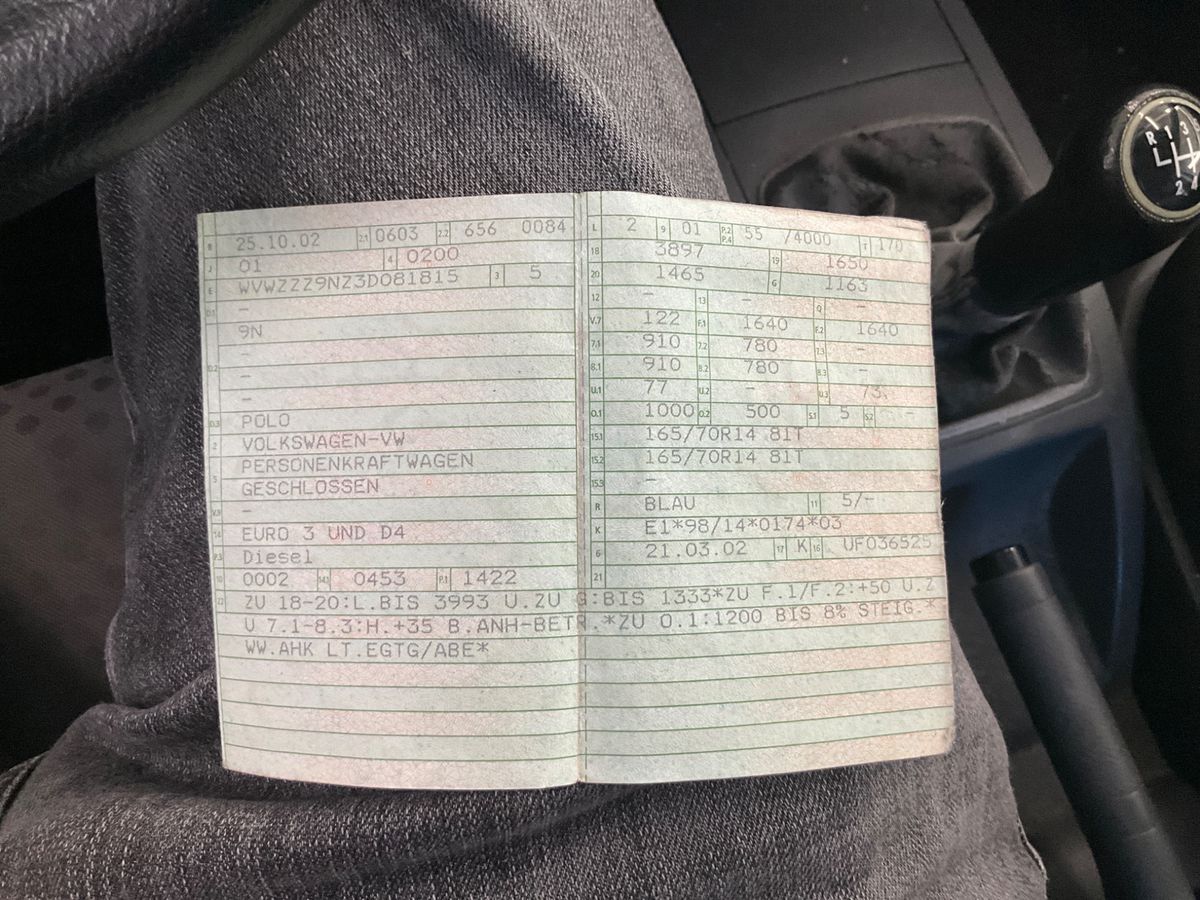 B 25.10.02 2.1 0603 2.2 656 0084
J 01 4 0200
E WVWZZZ9NZ3D081815 3 5
D.1 -
9N
D.2 -
-
-
D.3 POLO
2 VOLKSWAGEN-VW
5 PERSONENKRAFTWAGEN
GESCHLOSSEN
V.9 -
14 EURO 3 UND D4
P.3 Diesel
10 0002 14.1 0453 P.1 1422
L 2 9 01 P.2 P.4 55 /4000 T 170
18 3897 19 1650
20 1465 G 1163
12 - 13 - Q -
V.7 122 F.1 1640 F.2 1640
7.1 910 7.2 780 7.3 -
8.1 910 8.2 780 8.3 -
U.1 77 U.2 - U.3 73
O.1 1000 O.2 500 S.1 5 S.2 -
15.1 165/70R14 81T
15.2 165/70R14 81T
15.3 -
R BLAU 11 5/-
K E1*98/14*0174*03
6 21.03.02 17 K 16 UF036525
21
22 ZU 18-20:L.BIS 3993 U.ZU G:BIS 1333*ZU F.1/F.2:+50 U.Z
U 7.1-8.3:H.+35 B.ANH-BETR.*ZU O.1:1200 BIS 8% STEIG.*
WW.AHK LT.EGTG/ABE*
R 1 3
2